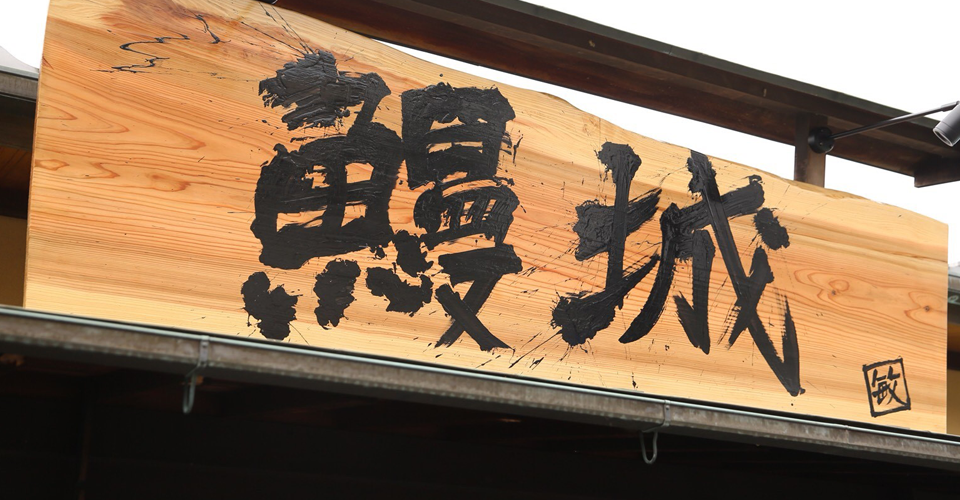 鰻城
敏